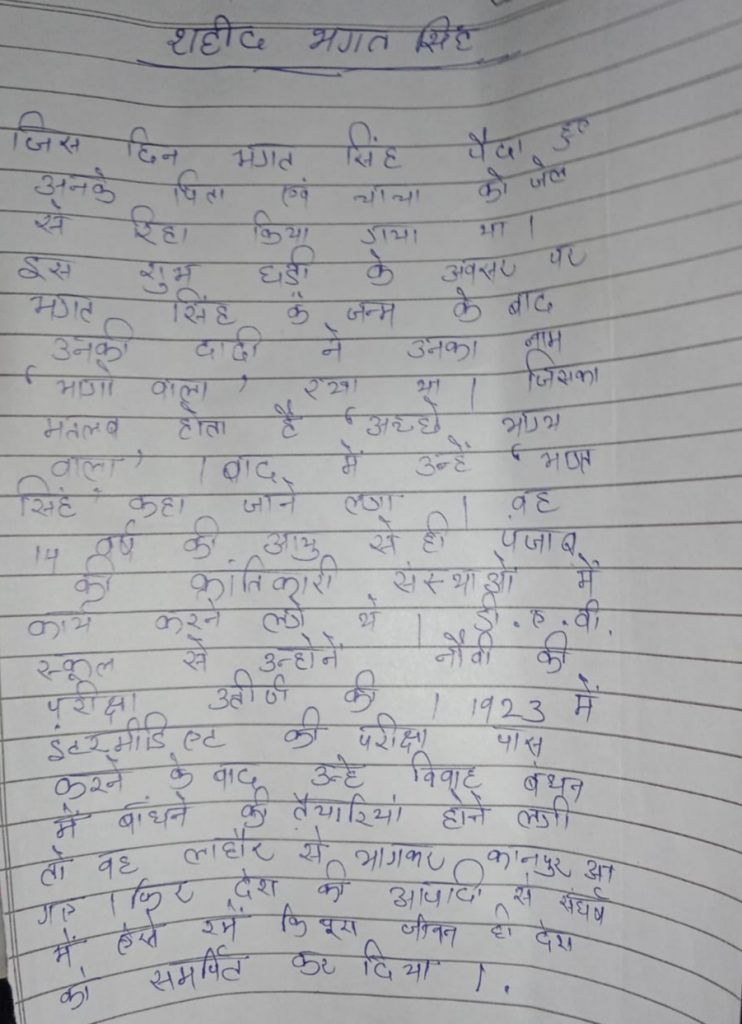 शहीद भगत सिंह
जिस दिन भगत सिंह पैदा हुए
उनके पिता एवं चाचा को जेल
से रिहा किया गया था ।
इस शुभ घड़ी के अवसर पर
भगत सिंह के जन्म के बाद
उनकी दादी ने उनका नाम
'भागो वाला' रखा था । जिसका
मतलब होता है 'अच्छे भाग्य
वाला' । बाद में उन्हें 'भगत
सिंह' कहा जाने लगा । वह
14 वर्ष की आयु से ही पंजाब
की क्रांतिकारी संस्थाओं में
कार्य करने लगे थे । डी.ए.वी.
स्कूल से उन्होनें नौवी की
परीक्षा उत्तीर्ण की । 1923 में
इंटरमीडिएट की परीक्षा पास
करने के बाद उन्हे विवाह बंधन
में बांधने की तैयारियां होने लगी
तो वह लाहौर से भागकर कानपुर आ
गए । फिर देश की आजादी से संघर्ष
में ऐसे रमें कि पूरा जीवन ही देश
को समर्पित कर दिया ।.